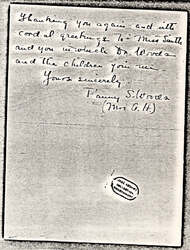 Thanking you again and with
cordial greetings to Miss Smith
and you in which Dr Woods
and the children join me
Yours sincerely
Fanny S. Woods
(Mrs. A. H.)